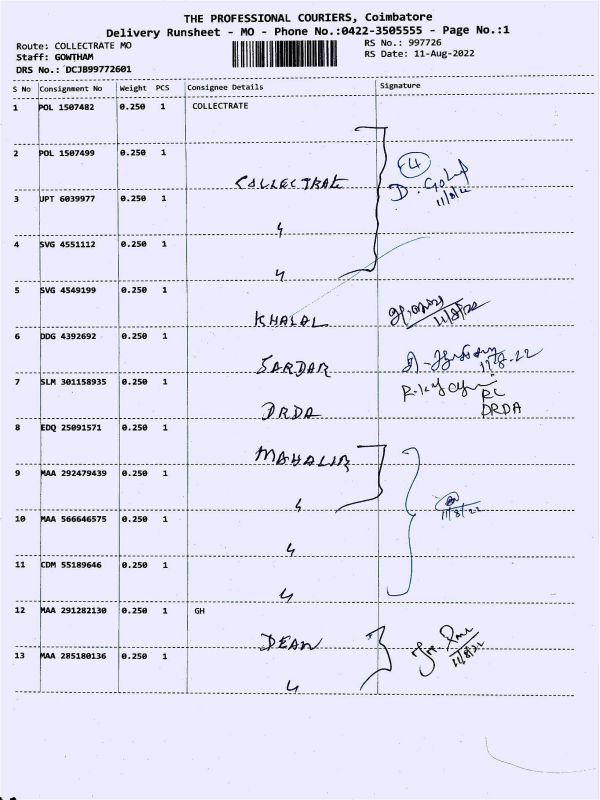 THE PROFESSIONAL COURIERS, Coimbatore
Delivery Runsheet - MO - Phone No.:0422-3505555 - Page No.:1
Route: COLLECTRATE MO
RS No.: 997726
Staff: GOWTHAM
RS Date: 11-Aug-2022
DRS No.: DCJB99772601
S No Consignment No Weight PCS Consignee Details Signature
1 POL 1507482 0.250 1 COLLECTRATE
2 POL 1507499 0.250 1
COLLECTRATE
4
D.
11/8/22
3 UPT 6039977 0.250 1
4 SVG 4551112 0.250 1
5 SVG 4549199 0.250 1
KHALAL
11/8/22
6 DDG 4392692 0.250 1
SARDAR
11.8.22
7 SLM 301158935 0.250 1
DRDA
RC
DRDA
8 EDQ 25091571 0.250 1
MAHALIR
9 MAA 292479439 0.250 1
11/8/22
10 MAA 566646575 0.250 1
11 CDM 55189646 0.250 1
12 MAA 291282130 0.250 1 GH
DEAN
11/8/22
13 MAA 285180136 0.250 1